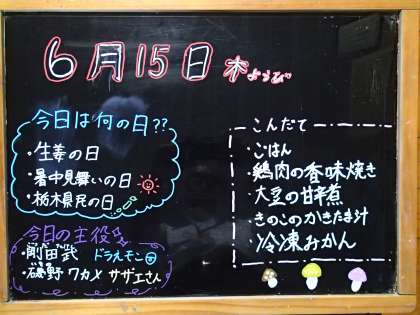 6月15日 木ようび
今日は何の日??
・生姜の日
・暑中見舞いの日
・栃木県民の日
今日の主役
・剛田武 ドラえもん
・磯野ワカメ サザエさん
こんだて
・ごはん
・鶏肉の香味焼き
・大豆の甘辛煮
・きのこのかきたま汁
・冷凍みかん